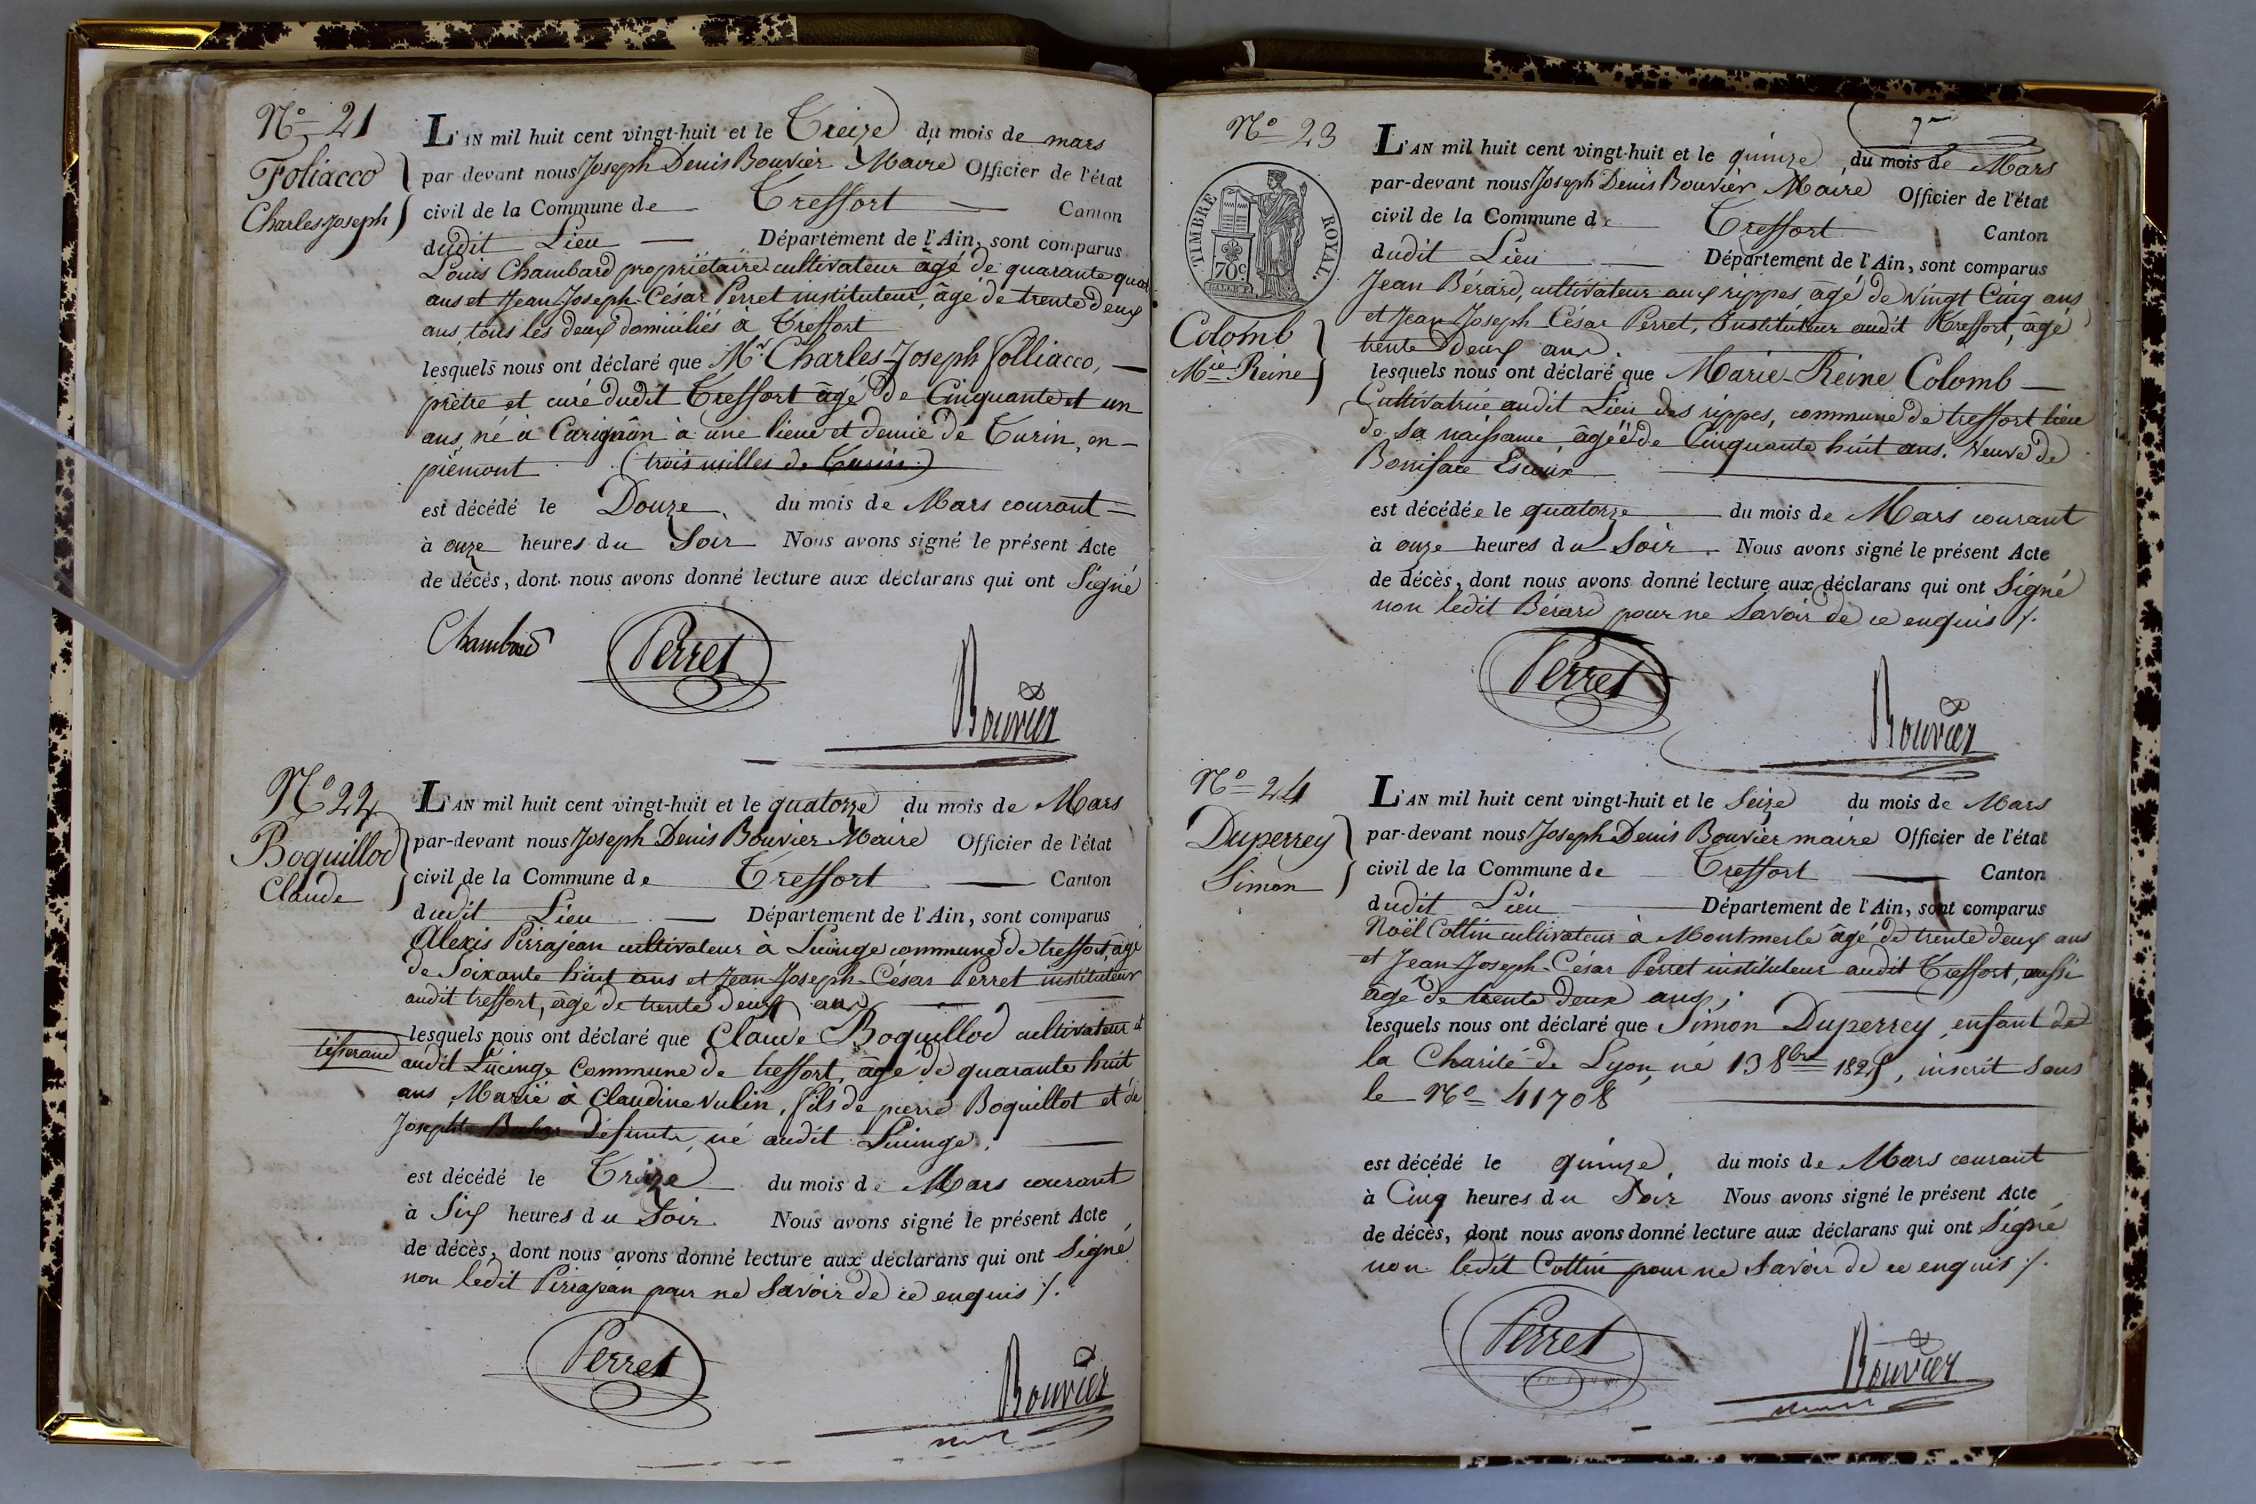 N° 21
Foliacco
Charles Joseph
L'AN mil huit cent vingt-huit et le Treize du mois de mars
par-devant nous Joseph Denis Bouvier Maire Officier de l'état
civil de la Commune de Treffort Canton
dudit Lieu Département de l'Ain, sont comparus
Louis Chambard propriétaire cultivateur âgé de quarante quatre
ans et Jean Joseph César Perret instituteur, âgé de trente deux
ans, tous les deux domiciliés à Treffort
lesquels nous ont déclaré que Mr Charles Joseph Folliacco,
prêtre et curé dudit Treffort âgé de Cinquante et un
ans, né à Carignan à une lieue et demie de Turin, en
piémont (trois milles de Turin)
est décédé le Douze du mois de Mars courant
à onze heures du Soir Nous avons signé le présent Acte
de décès, dont nous avons donné lecture aux déclarans qui ont Signé
Chambard Perret
Bouvier
N° 22
Boquillod
Claude
L'AN mil huit cent vingt-huit et le quatorze du mois de Mars
par-devant nous Joseph Denis Bouvier Maire Officier de l'état
civil de la Commune de Treffort Canton
dudit Lieu Département de l'Ain, sont comparus
Alexis Pirrajean cultivateur à Lucinge commune de treffort, âgé
de Soixante huit ans et Jean Joseph César Perret instituteur
audit treffort, âgé de trente deux ans
lesquels nous ont déclaré que Claude Boquillod cultivateur et
tisserand
audit Lucinge Commune de treffort, âgé de quarante huit
ans, Marié à Claudine Vulin, fils de pierre Boquillot et de
Josephte défunte, né audit Lucinge.
est décédé le Treize du mois de Mars courant
à Six heures du Soir. Nous avons signé le présent Acte
de décès, dont nous avons donné lecture aux déclarans qui ont Signé
non ledit Pirrajean pour ne Savoir de ce enquis /.
Perret
Bouvier
7me
N° 23
TIMBRE ROYAL.
70c
Colomb
Mie Reine
L'AN mil huit cent vingt-huit et le quinze du mois de Mars
par-devant nous Joseph Denis Bouvier Maire Officier de l'état
civil de la Commune de Treffort Canton
dudit Lieu Département de l'Ain, sont comparus
Jean Bérard, cultivateur aux rippes, âgé de vingt Cinq ans
et Jean Joseph César Perret, Instituteur audit Treffort, âgé
trente deux ans.
lesquels nous ont déclaré que Marie-Reine Colomb
Cultivatrice audit Lieu des rippes, commune de treffort lieu
de sa naissance âgée de Cinquante huit ans. Veuve de
Boniface
est décédée le quatorze du mois de Mars courant
à onze heures du Soir. Nous avons signé le présent Acte
de décès, dont nous avons donné lecture aux déclarans qui ont Signé
non ledit Bérard pour ne Savoir de ce enquis /.
Perret
Bouvier
N° 24
Duperrey
Simon
L'AN mil huit cent vingt-huit et le Seize du mois de Mars
par-devant nous Joseph Denis Bouvier maire Officier de l'état
civil de la Commune de Treffort Canton
dudit Lieu Département de l'Ain, sont comparus
Noël Cottin cultivateur à Montmerle âgé de trente deux ans
et Jean Joseph-César Perret instituteur audit Treffort, aussi
âgé de trente deux ans;
lesquels nous ont déclaré que Simon Duperrey, enfant de
la Charité de Lyon, né 13 8bre, inscrit Sous
le N° 41708
est décédé le quinze, du mois de Mars courant
à Cinq heures du Soir Nous avons signé le présent Acte
de décès, dont nous avons donné lecture aux déclarans qui ont Signé
non ledit Cottin pour ne Savoir de ce enquis /.
Perret
Bouvier